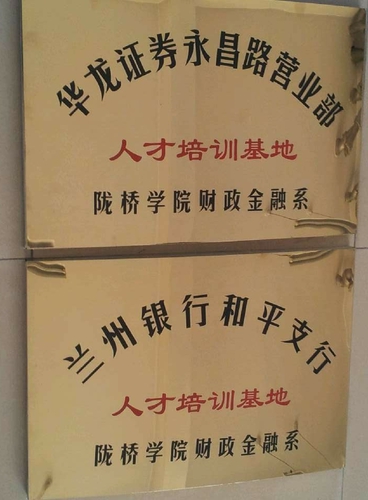 华龙证券永昌路营业部
人才培训基地
陇桥学院财政金融系
兰州银行和平支行
人才培训基地
陇桥学院财政金融系